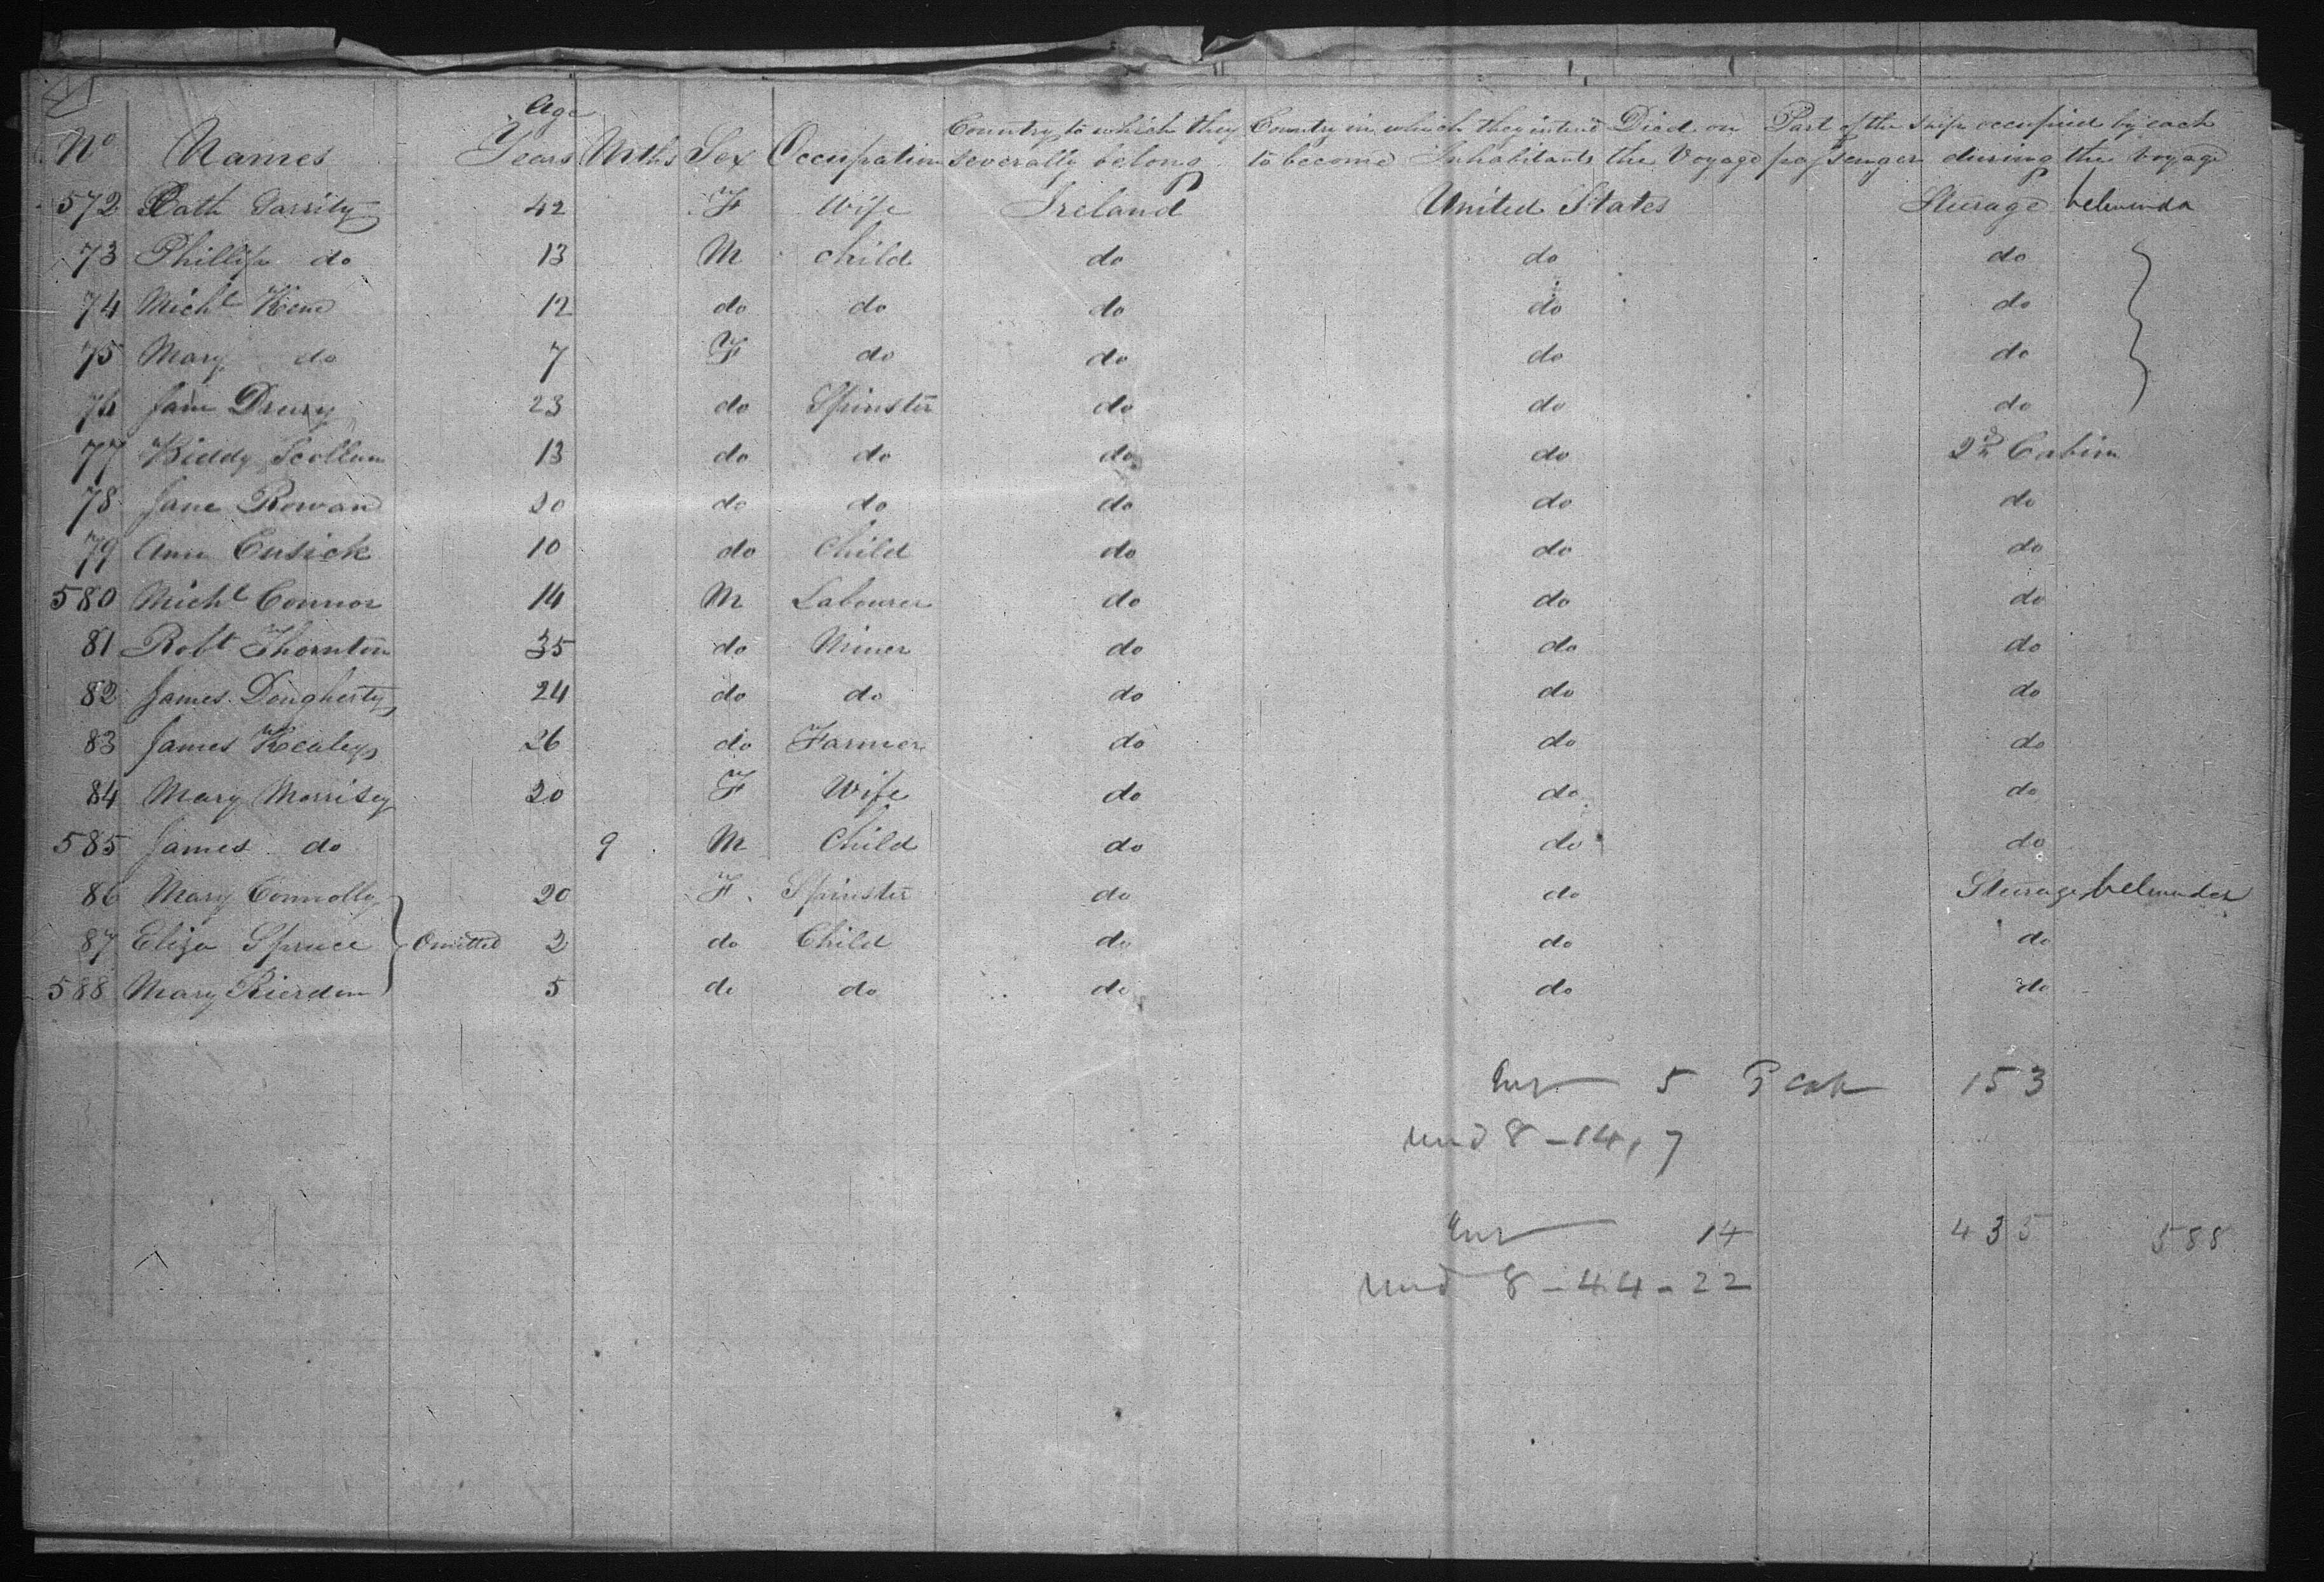 Age
Country to which they Country in which they intend Died on Part of the Ship occupied by each
No Names Years Mths Sex Occupation severally belong to become Inhabitants the Voyage passenger during the voyage
572 Cath Garrity 42 F Wife Ireland United States Steerage
73 Phillip do 13 M child do do do
74 Michl 12 do do do do do
75 Mary do 7 F do do do do
76 Jane Drury 23 do Spinster do do do
77 Biddy Scollan 13 do do do do 2nd Cabin
78 Jane Rowan 20 do do do do do
79 Ann Cusick 10 do Child do do do
580 Michl Connor 14 M Labourer do do do
81 Robt Thornton 35 do Miner do do do
82 James Dougherty 24 do do do do do
83 James Kealey 26 do Farmer do do do
84 Mary Morrisey 20 F Wife do do do
585 James do 9 M Child do do do
86 Mary Connolly 20 F. Spinster do do Steerage
87 Eliza Spruce Omitted 2 do Child do do do
588 Mary Rierdon 5 do do do do do
5 153
und 8 - 14, 7
14 435 588
und 8 - 44 - 22